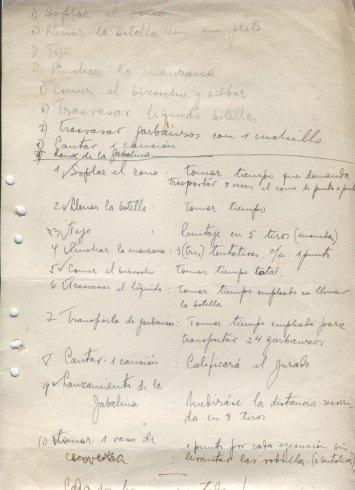 1) Soplar el cono
2) Llenar la botella con un plato
3) Tejo
4) Pinchar la manzana
5) Comer el bizcocho y silbar
6) Trasvasar líquido botella
7) Trasvasar garbanzos con 1 cuchillo
8) Cantar 1 canción
9) de la Jabalina
1 Soplar el cono : Tomar tiempo que demanda
trasportar veces el cono de punta a punta
2 Llenar la botella : Tomar tiempo
3 Tejo : Puntaje en 5 tiros (moneda)
4 Pinchar la manzana : 3 (tres) tentativas c/u. 1 punto
5 Comer el bizcocho : tomar tiempo total.
6 Trasvasar el líquido : tomar tiempo empleado en llenar
la botella
7 Transporte de garbanzos : Tomar tiempo empleado para
transportar 24 garbanzos
8 Cantar 1 canción : Calificará el Jurado
9 Lanzamiento de la
Jabalina Mediráse la distancia recorri
da en 3 tiros
10 Tomar 1 vaso de 1 punto por cada ejecución sin
cerveza levantar las rodillas. (2 tentativas)